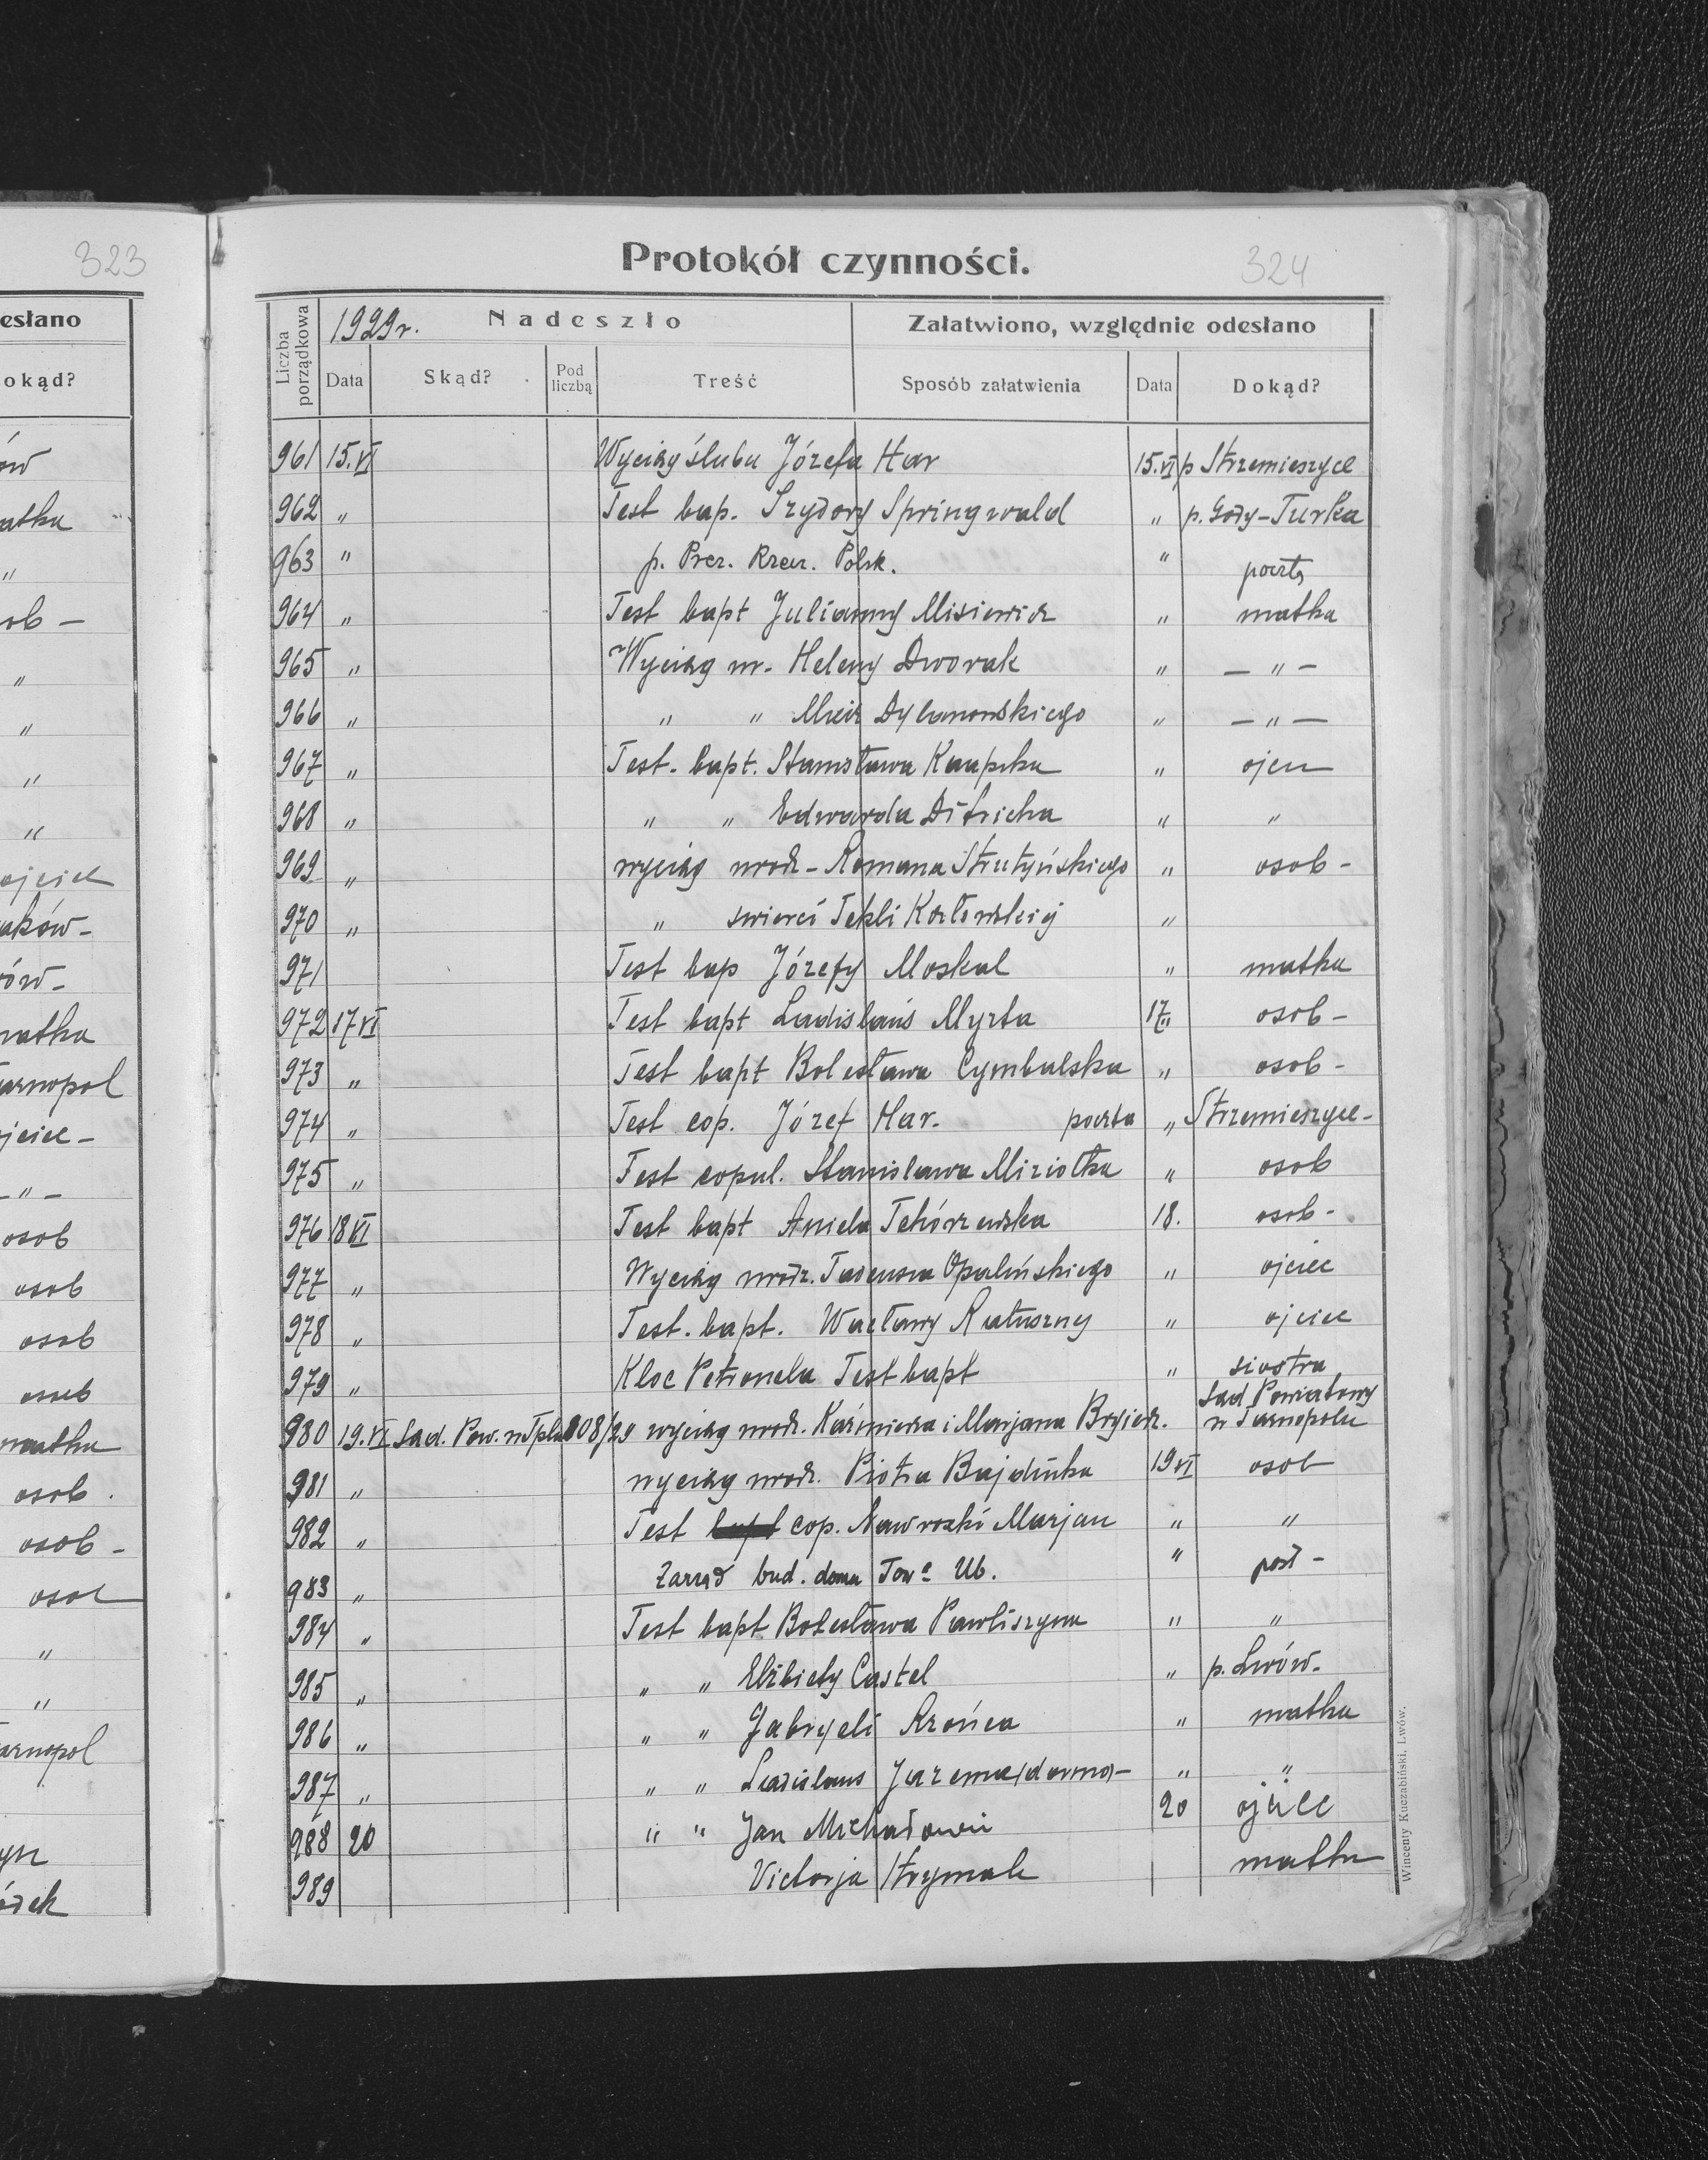 323
esłano
okąd?
ów
matka
"
osob —
"
"
"
"
ojciec
Kraków -
Lwów -
matka
Tarnopol
ojciec -
- " -
osob
osob
osob
osob
matka
osob .
osob -
osob
"
"
Tarnopol
324
Protokół czynności.
Liczba porządkowa
1929 r.
Nadeszło
Załatwiono, względnie odesłano
Data Skąd? Pod liczbą Treść Sposób załatwienia Data Dokąd?
961 15.VI Wyciąg ślubu Józefa Har 15.VI p Strzemieszyce
962 " Test bap. Izydory Springwald " p. Turka
963 " p. Prez. Rzecz. Polsk. " pocztą
964 " Test bapt Julianny Misiewicz " matka
965 " Wyciąg ur. Heleny Dworak " — " —
966 " " " Miecz Dybanowskiego " — " —
967 " Test. bapt. Stanisława " ojciec
968 " " " Edwarda Ditricha " "
969 " wyciąg urodz - Romana Strutyńskiego " osob -
970 " " śmierci Tekli Kozłowskiej "
971 Test bap Józefy Moskal " matka
972 17 VI Test bapt Ladislaus Myrta 17 " osob -
973 " Test bapt Bolesława Cymbalska " osob -
974 " Test cop. Józef Har. poczta " Strzemieszyce -
975 " Test copul. Stanisława Miziołka " osob
976 18 VI Test bapt Aniela Tchórzewska 18. osob -
977 " Wyciąg urodz. Tadeusza Opalińskiego " ojciec
978 " Test. bapt. Wacławy Ratuszny " ojciec
979 " Kloc Petronela Test bapt " siostra
980 19.VI Sąd. Pow. w Tplu 808/29 wyciąg urodz. Kaźmierza i Marjana Brygidz. Sąd Powiatowy w Tarnopolu
981 " wyciąg urodz. Piotra Bajdiuka 19 VI osob
982 " Test bapt cop. Nawrocki Marjan " "
983 " Zarząd bud. domu Tow. Ub. " post -
984 " Test bapt Bolesława Pawliszyna " "
985 " " " Elżbiety Castel " p. Lwów -
986 " " " Gabryeli Krońca " matka
987 " " " Ladislaus Jarema " "
988 20 " " Jan Michałowicz 20 ojciec
989 Victorja Strymak matka
Wincenty Kuczabiński, Lwów.